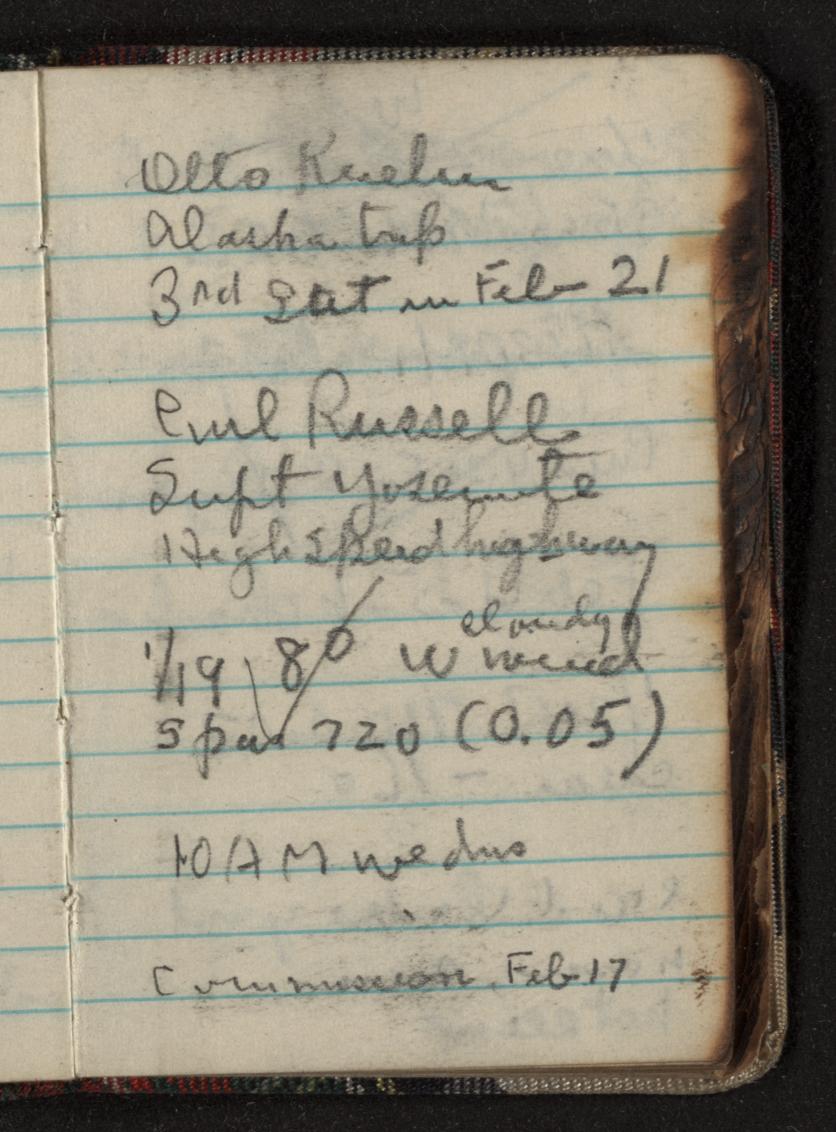 Otto Kuehn
Alaska trip
3rd Sat in Feb 21
Carl Russell
Supt Yosemite
High Speed highway
cloudy
1/19 80 W wind
720 (0.05)
10 AM wedns
Commission, Feb 17